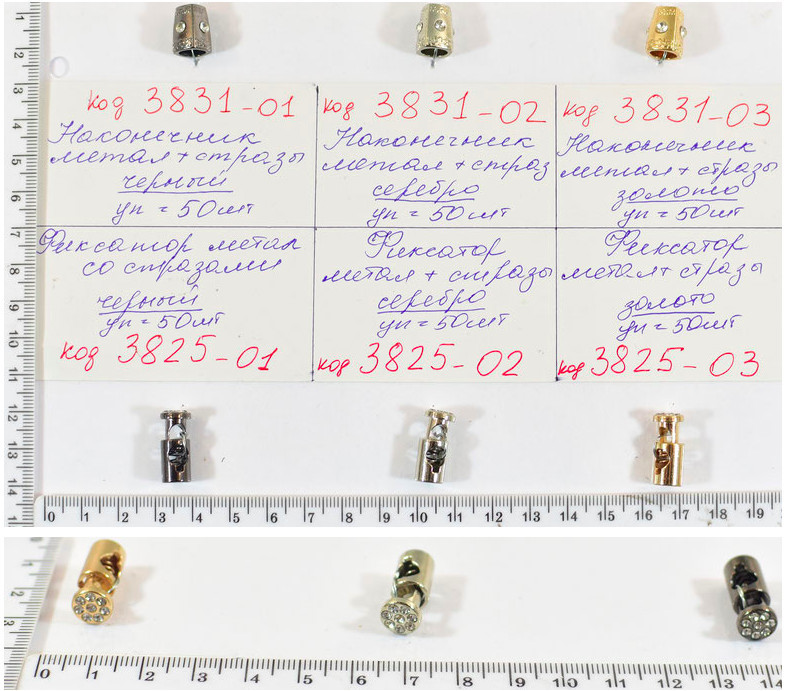 код 3831-01
Наконечник
метал + стразы
черный
уп = 50шт
код 3831-02
Наконечник
метал + страз
серебро
уп = 50шт
код 3831-03
Наконечник
метал + стразы
золото
уп = 50шт
Фиксатор метал
со стразами
черный
уп = 50шт
код 3825-01
Фиксатор
метал + стразы
серебро
уп = 50шт
код 3825-02
Фиксатор
метал + стразы
золото
уп = 50шт
код 3825-03
1
2
3
4
5
6
7
8
9
10
11
12
13
14
0 1 2 3 4 5 6 7 8 9 10 11 12 13 14 15 16 17 18 19
1
2
3
0 1 2 3 4 5 6 7 8 9 10 11 12 13 14